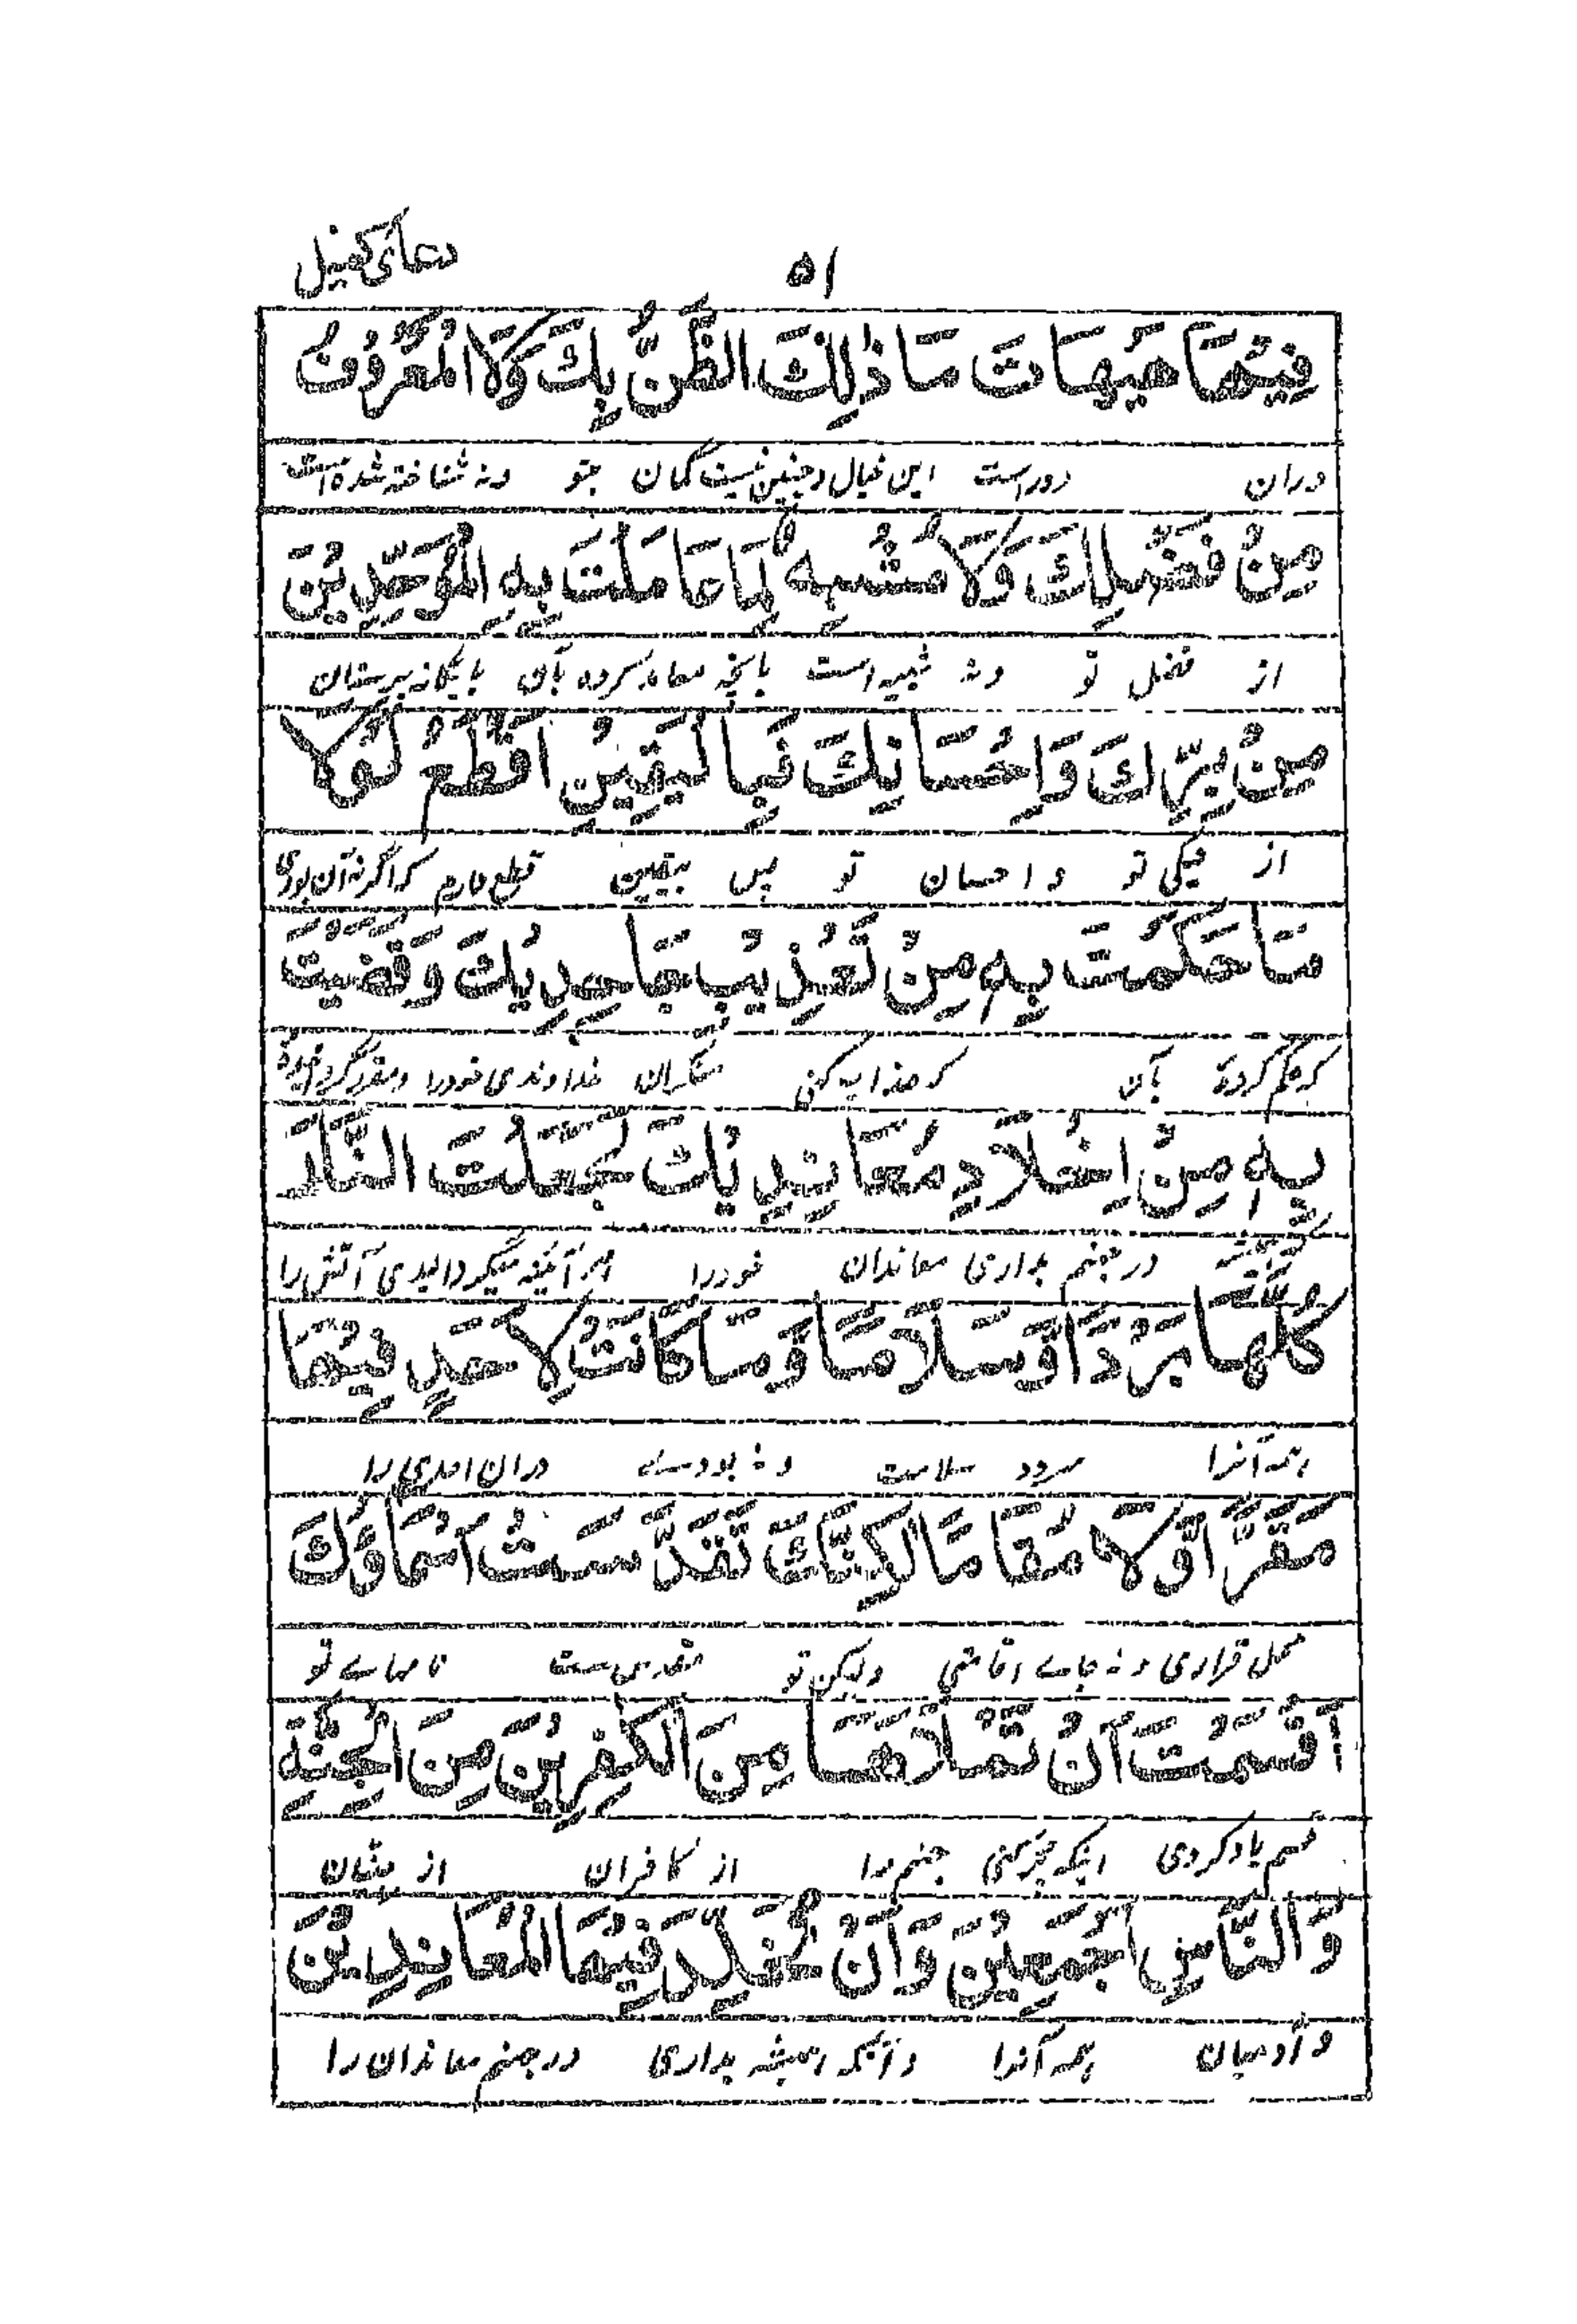 دعائے کمیل
۵۱
فِيْهَا هَيْهَاتَ مَا ذٰلِكَ الظَّنُّ بِكَ وَلَا الْمَعْرُوْفُ
دران دور است این خیال و چنین نیست گمان بتو و نه شناخته شده است
مِنْ فَضْلِكَ وَلَا مُشْبِهٌ لِمَا عَامَلْتَ بِهِ الْمُوَحِّدِيْنَ
از فضل تو و نه شبیه است بانچه معامله کرده بآن با یگانه پرستان
مِنْ بِرِّكَ وَاِحْسَانِكَ فَبِالْيَقِيْنِ اَقْطَعُ لَوْلَا
از نیکی تو و احسان تو پس بیقین قطع دارم که اگر نه آن بودی
مَا حَكَمْتَ بِهٖ مِنْ تَعْذِيْبِ جَاحِدِيْكَ وَقَضَيْتَ
که حکم کردهٔ بآن که عذاب کنی منکران خداوندی خود را و مقرر
بِهٖ مِنْ اِخْلَادِ مُعَانِدِيْكَ لَجَعَلْتَ النَّارَ
همیشه در جهنم بداری معاندان خود را هر آئینه میگردانیدی آتش را
كُلَّهَا بَرْدًا وَّسَلَامًا وَّمَا كَانَتْ لِاَحَدٍ فِيْهَا
همه آنرا سرد و سلامت و نه بودے دران احدی را
مَقَرًّا وَّلَا مُقَامًا لٰكِنَّكَ تَقَدَّسَتْ اَسْمَاؤُكَ
محل قراری و نه جاے اقامتی و لیکن تو مقدس ست نامهاے تو
اَقْسَمْتَ اَنْ تَمْلَاَهَا مِنَ الْكٰفِرِيْنَ مِنَ الْجِنَّةِ
قسم یاد کردی اینکه پر کنی جهنم را از کافران از جنیان
وَالنَّاسِ اَجْمَعِيْنَ وَاَنْ تُخَلِّدَ فِيْهَا الْمُعَانِدِيْنَ
و آدمیان همه آنرا و آنکه همیشه بداری در جهنم معاندان را